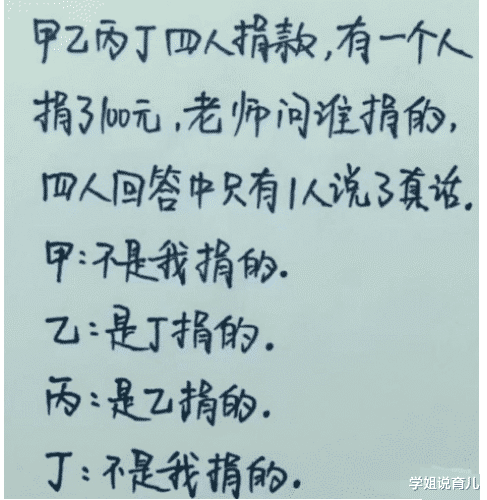 甲乙丙丁四人捐款,有一个人
捐了100元,老师问谁捐的,
四人回答中只有1人说了真话.
甲:不是我捐的.
乙:是丁捐的.
丙:是乙捐的.
丁:不是我捐的.
学姐说育儿